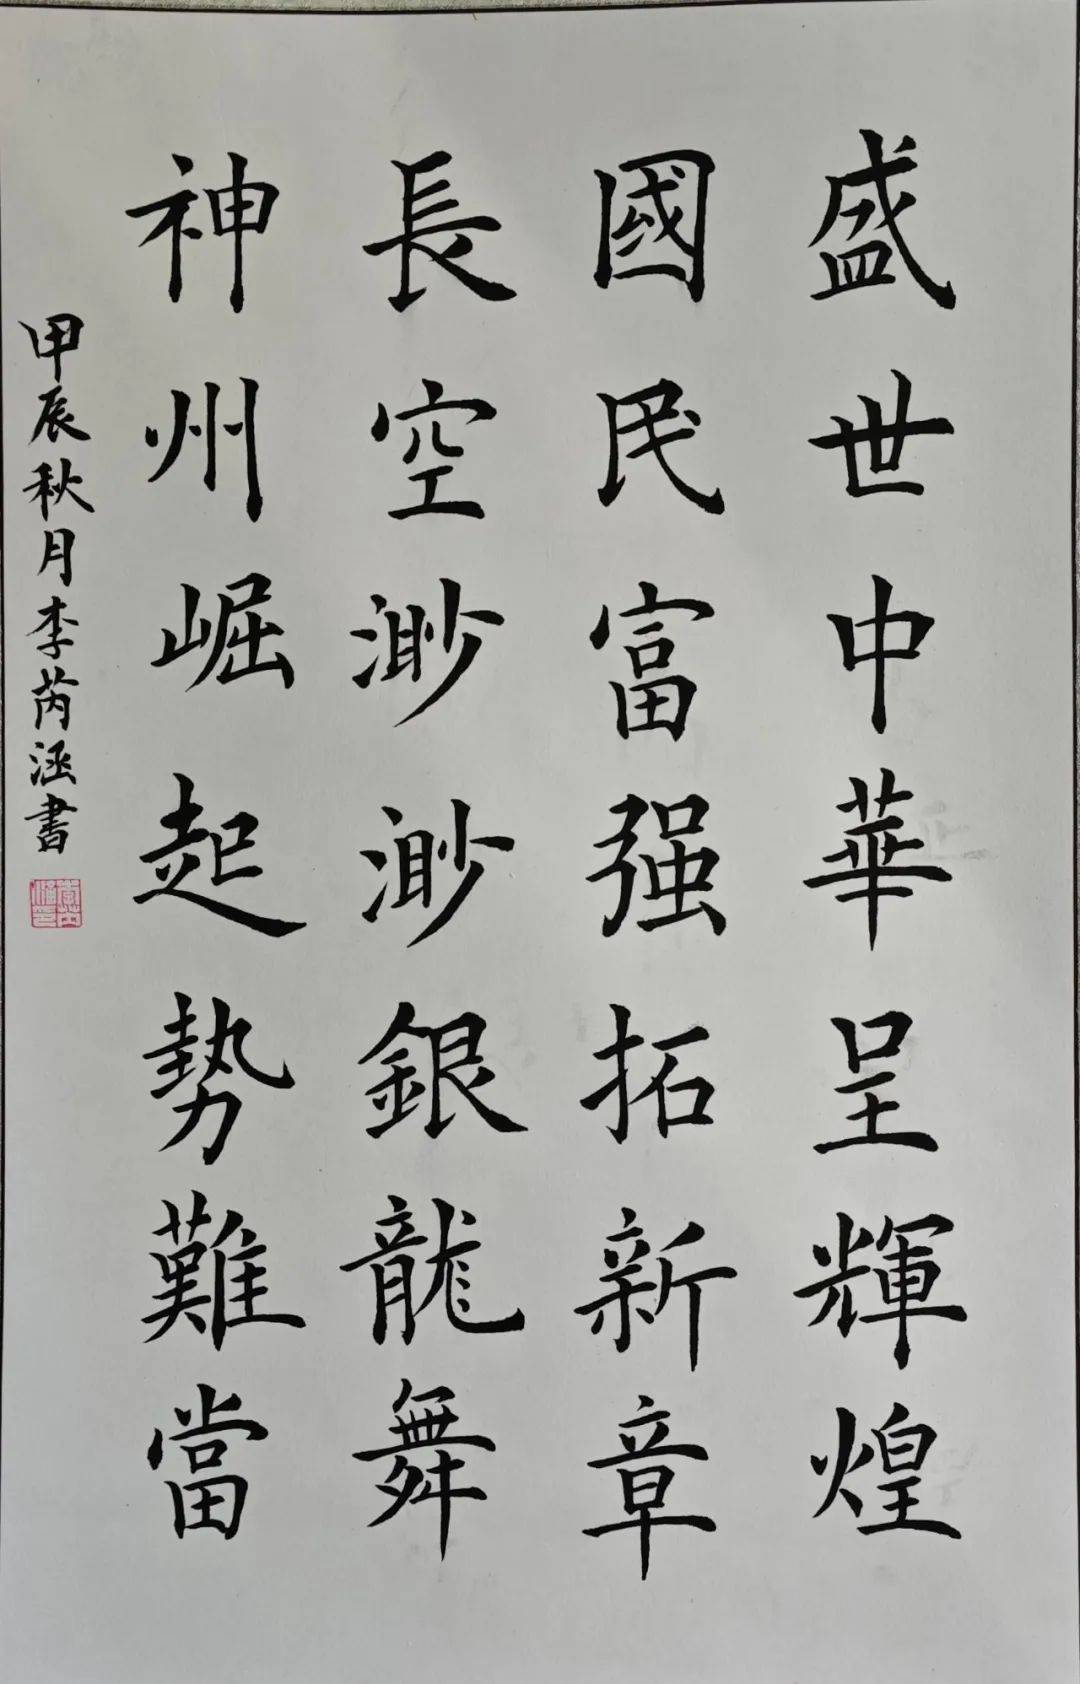 盛世中華呈輝煌
國民富强拓新章
長空渺渺銀龍舞
神州崛起勢難當
甲辰秋月李芮涵書